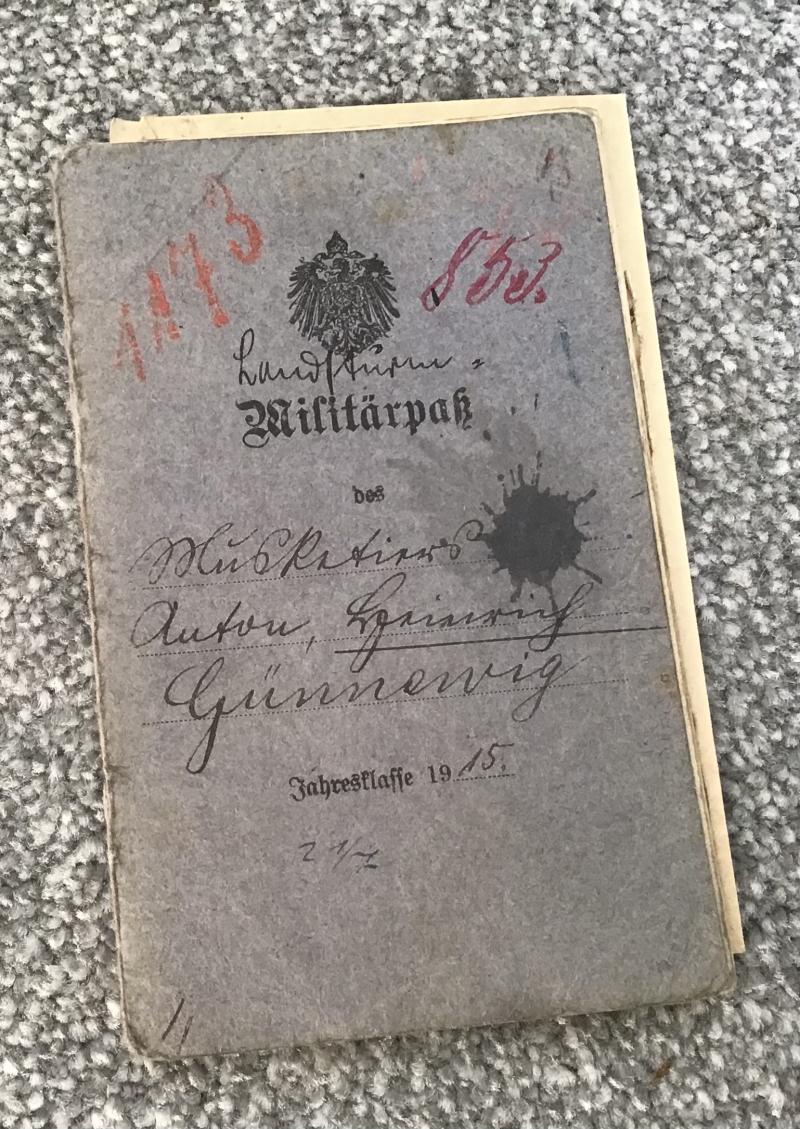 1173
853.
Landsturm-
Militärpaß
des
Musketiers
Anton, Heinrich
Günnewig
Jahresklasse 1915.